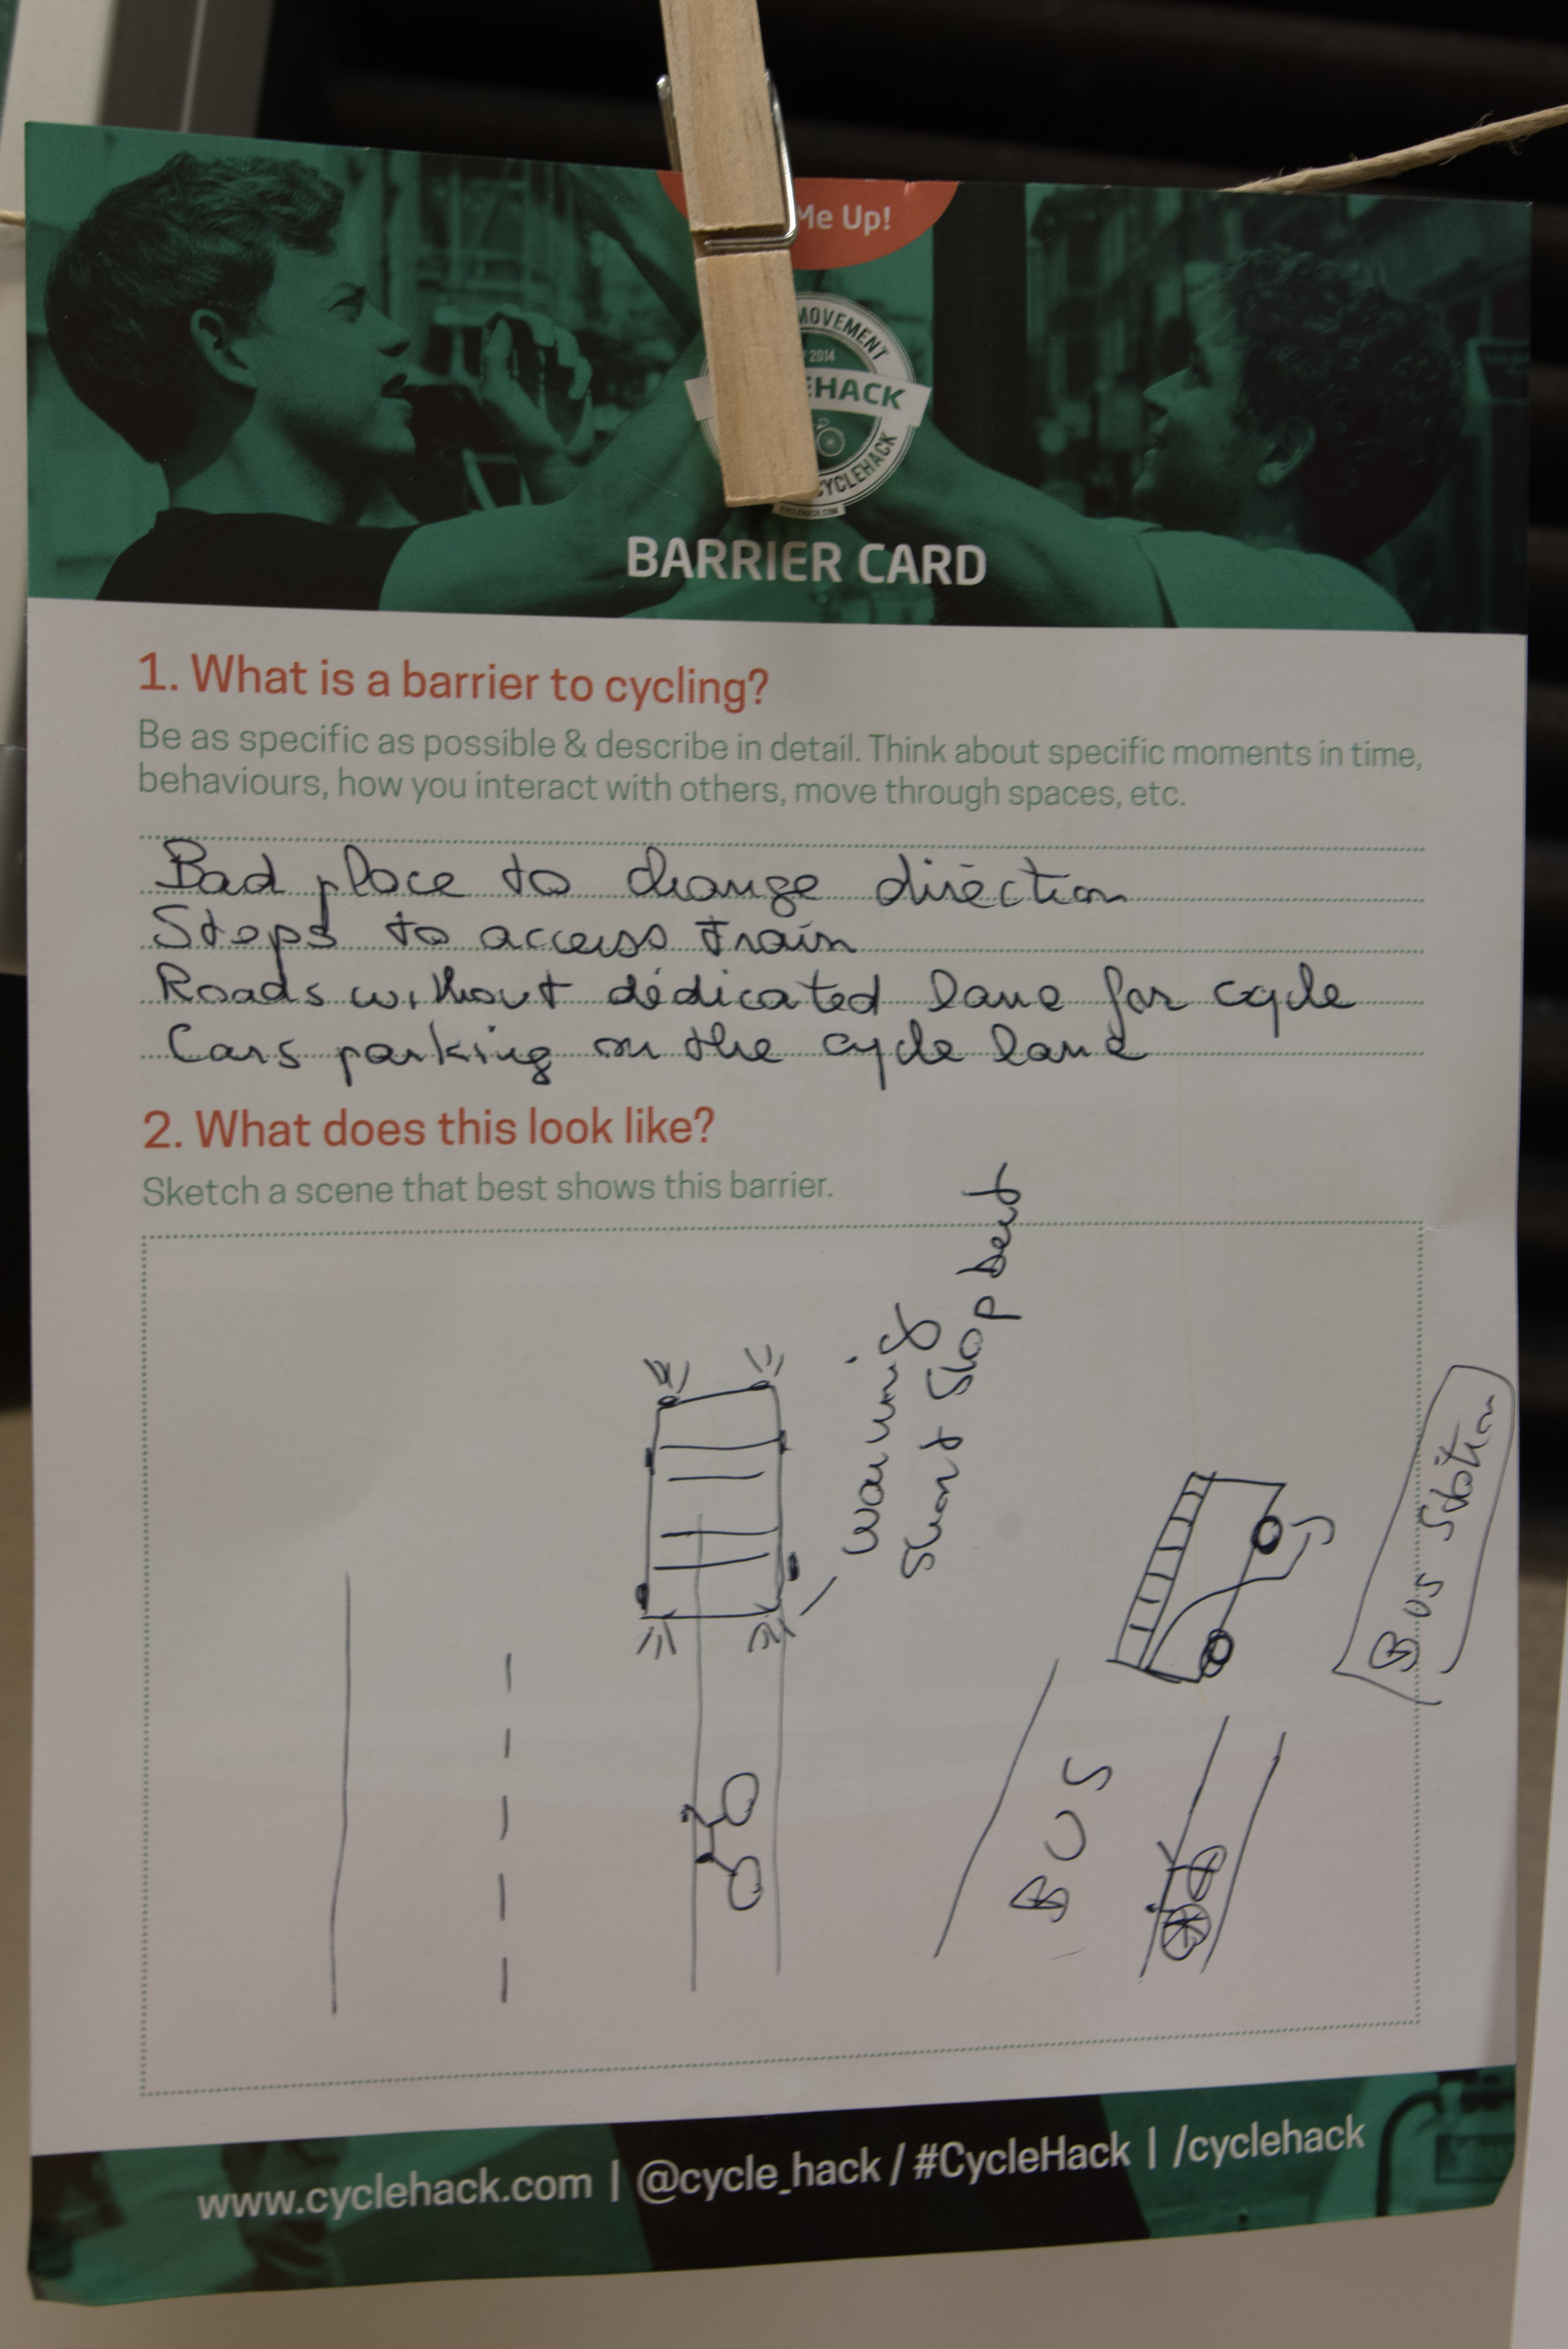 Me Up!
MOVEMENT
2014
EHACK
CYCLEHACK
CYCLEHACK.COM
BARRIER CARD
1. What is a barrier to cycling?
Be as specific as possible & describe in detail. Think about specific moments in time,
behaviours, how you interact with others, move through spaces, etc.
Bad place to change direction
Steps to access train
Roads without dédicated lane for cycle
Cars parking on the cycle lane
2. What does this look like?
Sketch a scene that best shows this barrier.
warning
short stop
Bus Station
BUS
www.cyclehack.com | @cycle_hack / #CycleHack | /cyclehack